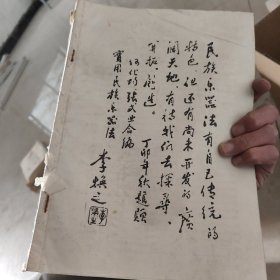 民族乐器法有自己传统的
特色，但还有尚未开发的广
阔天地，有待我们去探寻、
开拓、创造。
丁卯年秋题
张式业合编
实用民族乐器法
李焕之